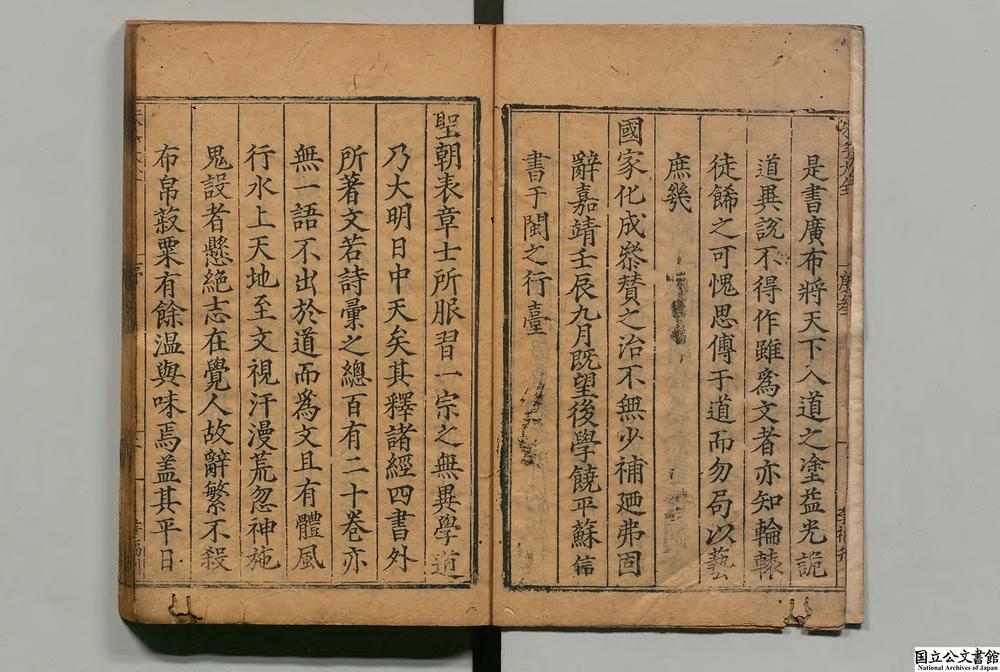 是書廣布將天下入道之塗益光詭
道異說不得作雖爲文者亦知輪轅
徒餙之可愧思傳于道而勿局以藝
庶幾
國家化成叅賛之治不無少補廼弗固
辭嘉靖壬辰九月旣望後學饒平蘇信
書于閩之行臺
聖朝表章士所服習一宗之無異學道
乃大明日中天矣其釋諸經四書外
所著文若詩彚之總百有二十卷亦
無一語不出於道而爲文且有體風
行水上天地至文視汗漫荒忽神施
鬼設者懸絶志在覺人故辭繁不殺
布帛菽粟有餘温與味焉盖其平日
国立公文書館
National Archives of Japan